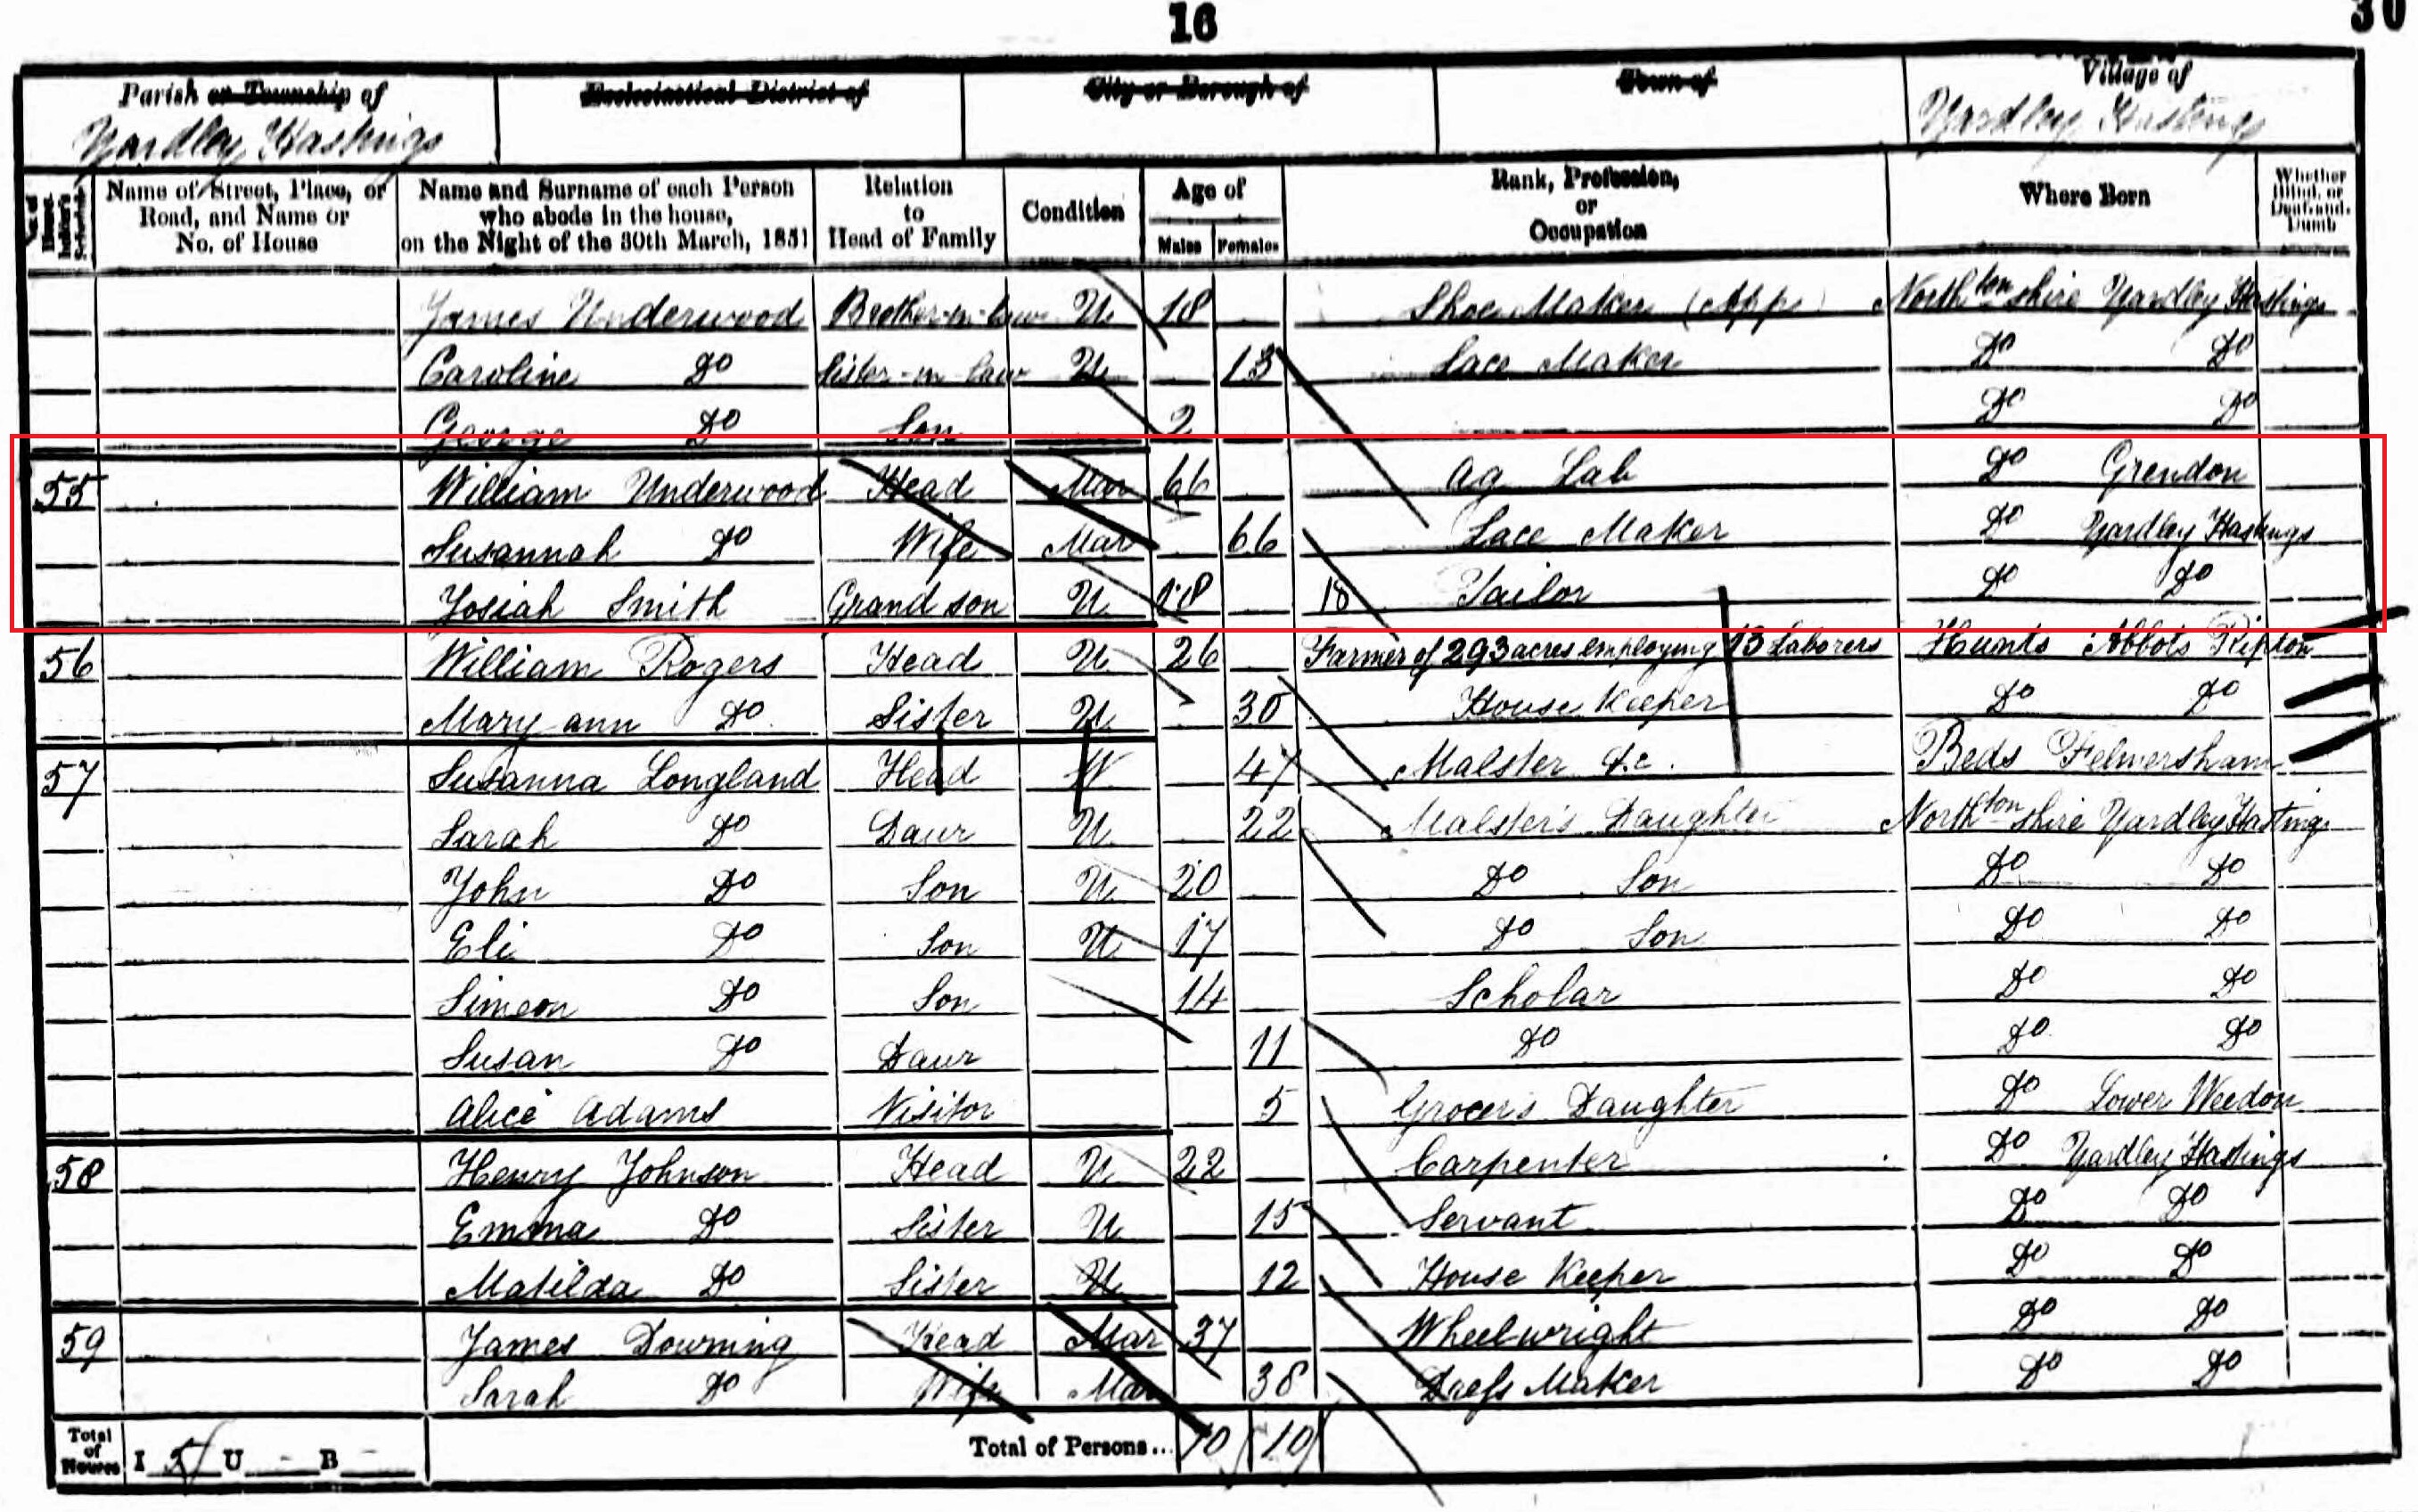 16
30
Parish or Township of
Ecclesiastical District of
City or Borough of
Town of
Village of
Yardley Hastings
Yardley Hastings
No. of House-holder's Schedule
Name of Street, Place, or Road, and Name or No. of House
Name and Surname of each Person who abode in the house, on the Night of the 30th March, 1851
Relation to Head of Family
Condition
Age of
Males
Females
Rank, Profession, or Occupation
Where Born
Whether Blind, or Deaf-and-Dumb
James Underwood Brother-in-law U 18 Shoe Maker (App) North^ton shire Yardley Hastings
Caroline Do Sister-in-law U 13 Lace Maker Do Do
George Do Son 2 Do Do
55 William Underwood Head Mar 66 Ag Lab Do Grendon
Susannah Do Wife Mar 66 Lace Maker Do Yardley Hastings
Josiah Smith Grand son U 18 18 Tailor Do Do
56 William Rogers Head U 26 Farmer of 293 acres employing 13 Laborers Hunts Abbots Ripton
Mary ann Do Sister U 30 House Keeper Do Do
57 Susanna Longland Head W 47 Malster &c. Beds Felmersham
Sarah Do Daur U 22 Malster's Daughter North^ton shire Yardley Hastings
John Do Son U 20 Do Son Do Do
Eli Do Son U 17 Do Son Do Do
Simeon Do Son 14 Scholar Do Do
Susan Do Daur 11 Do Do Do
Alice Adams Visitor 5 Grocer's Daughter Do Lower Weedon
58 Henry Johnson Head U 22 Carpenter Do Yardley Hastings
Emma Do Sister U 15 Servant Do Do
Matilda Do Sister U 12 House Keeper Do Do
59 James Downing Head Mar 37 Wheelwright Do Do
Sarah Do Wife Mar 38 Dress Maker Do Do
Total of Houses I 5 U - B - Total of Persons... 10 10